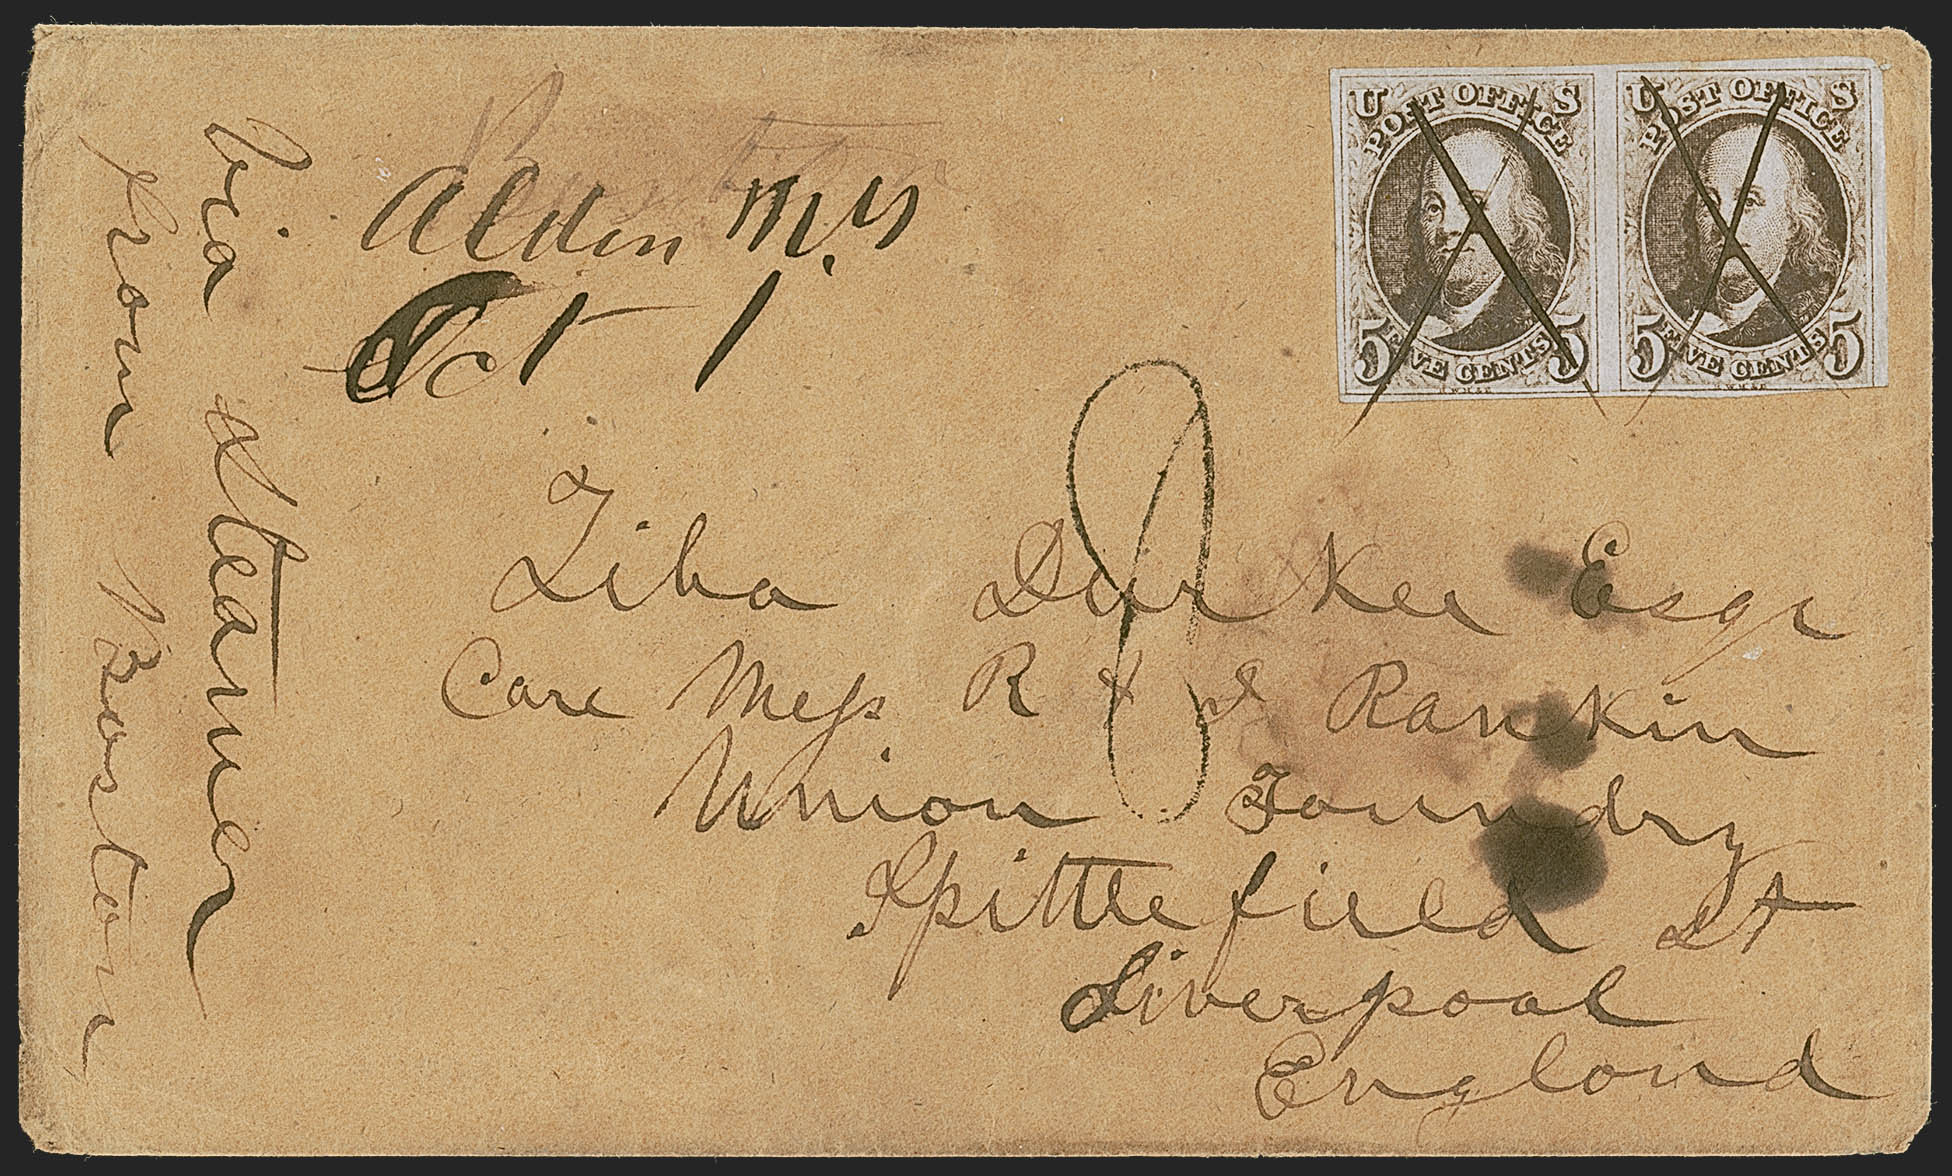 via Steamer
from Boston
Alden N.Y
Oct 1
U S
POST OFFICE
5 FIVE CENTS 5
U S
POST OFFICE
5 FIVE CENTS 5
Ziba Durkee Esqr
Care Mess R & J Rankin
Union Foundry
Spittlefield St
Liverpool
England